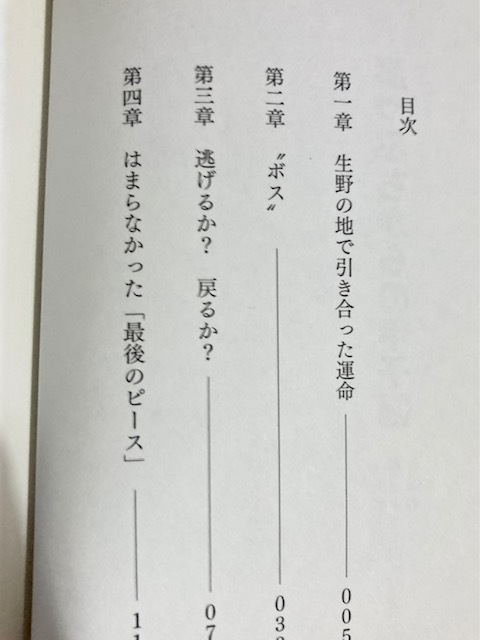 目次
第一章　生野の地で引き合った運命 005
第二章　〝ボス〟 03
第三章　逃げるか？　戻るか？ 07
第四章　はまらなかった「最後のピース」 11